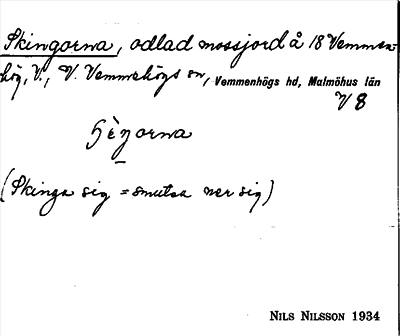 Skingorna, odlad mossjord å 18 Vemmen-
hög, V., V. Vemmenhögs sn, Vemmenhögs hd, Malmöhus län
V 8
(Skinga sig = smutsa ner sig)
NILS NILSSON 1934